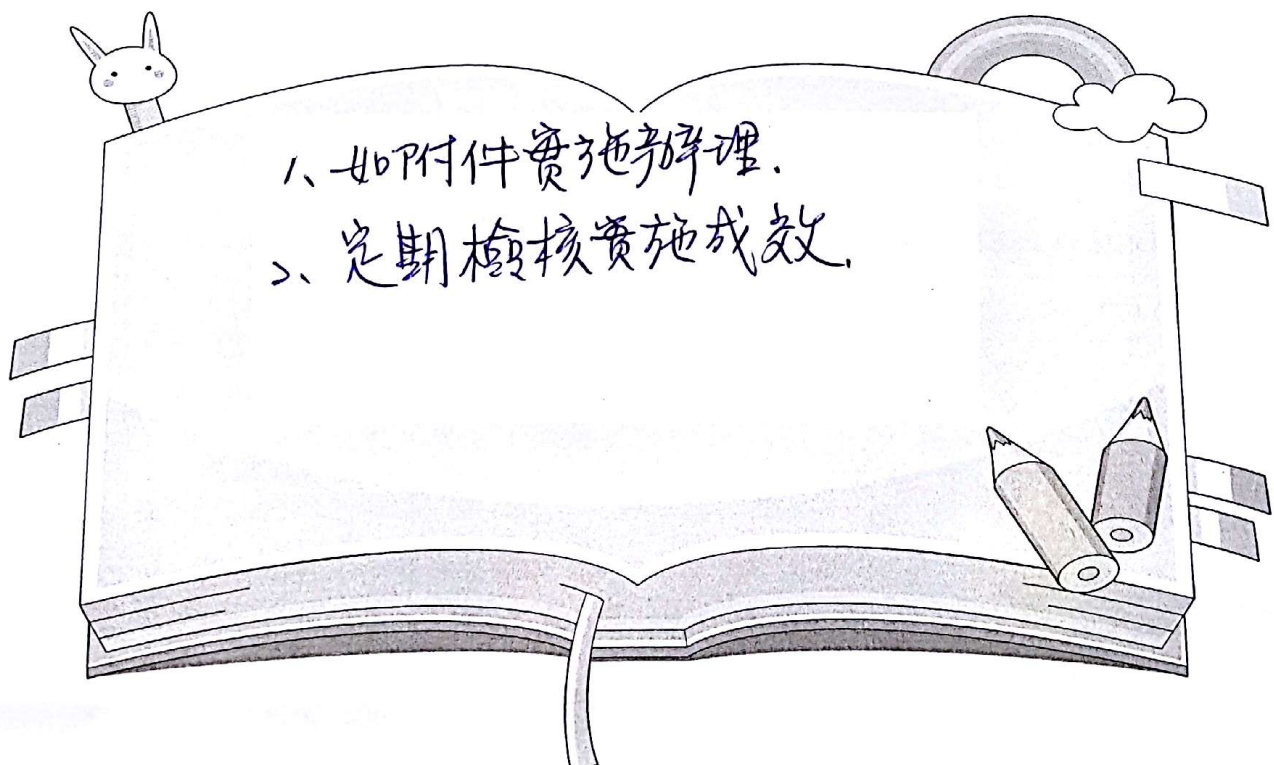 1、如附件實施辦理.
2、定期檢核實施成效.